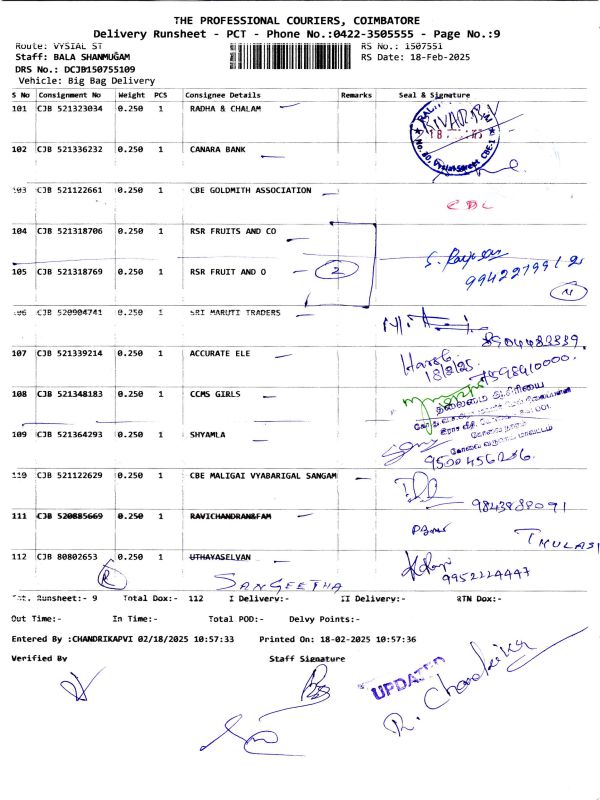 THE PROFESSIONAL COURIERS, COIMBATORE
Delivery Runsheet - PCT - Phone No.:0422-3505555 - Page No.:9
Route: VYSIAL ST
RS No.: 1507551
Staff: BALA SHANMUGAM
RS Date: 18-Feb-2025
DRS No.: DCJB150755109
Vehicle: Big Bag Delivery
S No Consignment No Weight PCS Consignee Details Remarks Seal & Signature
101 CJB 521323034 0.250 1 RADHA & CHALAM
102 CJB 521336232 0.250 1 CANARA BANK
103 CJB 521122661 0.250 1 CBE GOLDMITH ASSOCIATION
104 CJB 521318706 0.250 1 RSR FRUITS AND CO
105 CJB 521318769 0.250 1 RSR FRUIT AND O 2
106 CJB 520904741 0.250 1 SRI MARUTI TRADERS
107 CJB 521339214 0.250 1 ACCURATE ELE
18/2/25
108 CJB 521348183 0.250 1 CCMS GIRLS
109 CJB 521364293 0.250 1 SHYAMLA
9500456236
110 CJB 521122629 0.250 1 CBE MALIGAI VYABARIGAL SANGAM
9843888091
111 CJB 520885669 0.250 1 RAVICHANDRAN&FAM
THULASI
112 CJB 80802653 0.250 1 UTHAYASELVAN
R SANGEETHA 9952224447
Tot. Runsheet:- 9 Total Dox:- 112 I Delivery:- II Delivery:- RTN Dox:-
Out Time:- In Time:- Total POD:- Delvy Points:-
Entered By :CHANDRIKAPVI 02/18/2025 10:57:33 Printed On: 18-02-2025 10:57:36
Verified By Staff Signature
UPDATED
R. Chandrika